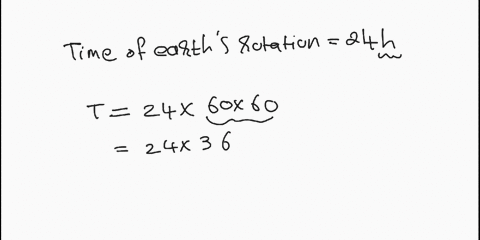 Time of earth's rotation = 24h
T = 24 x 60 x 60
= 24 x 36